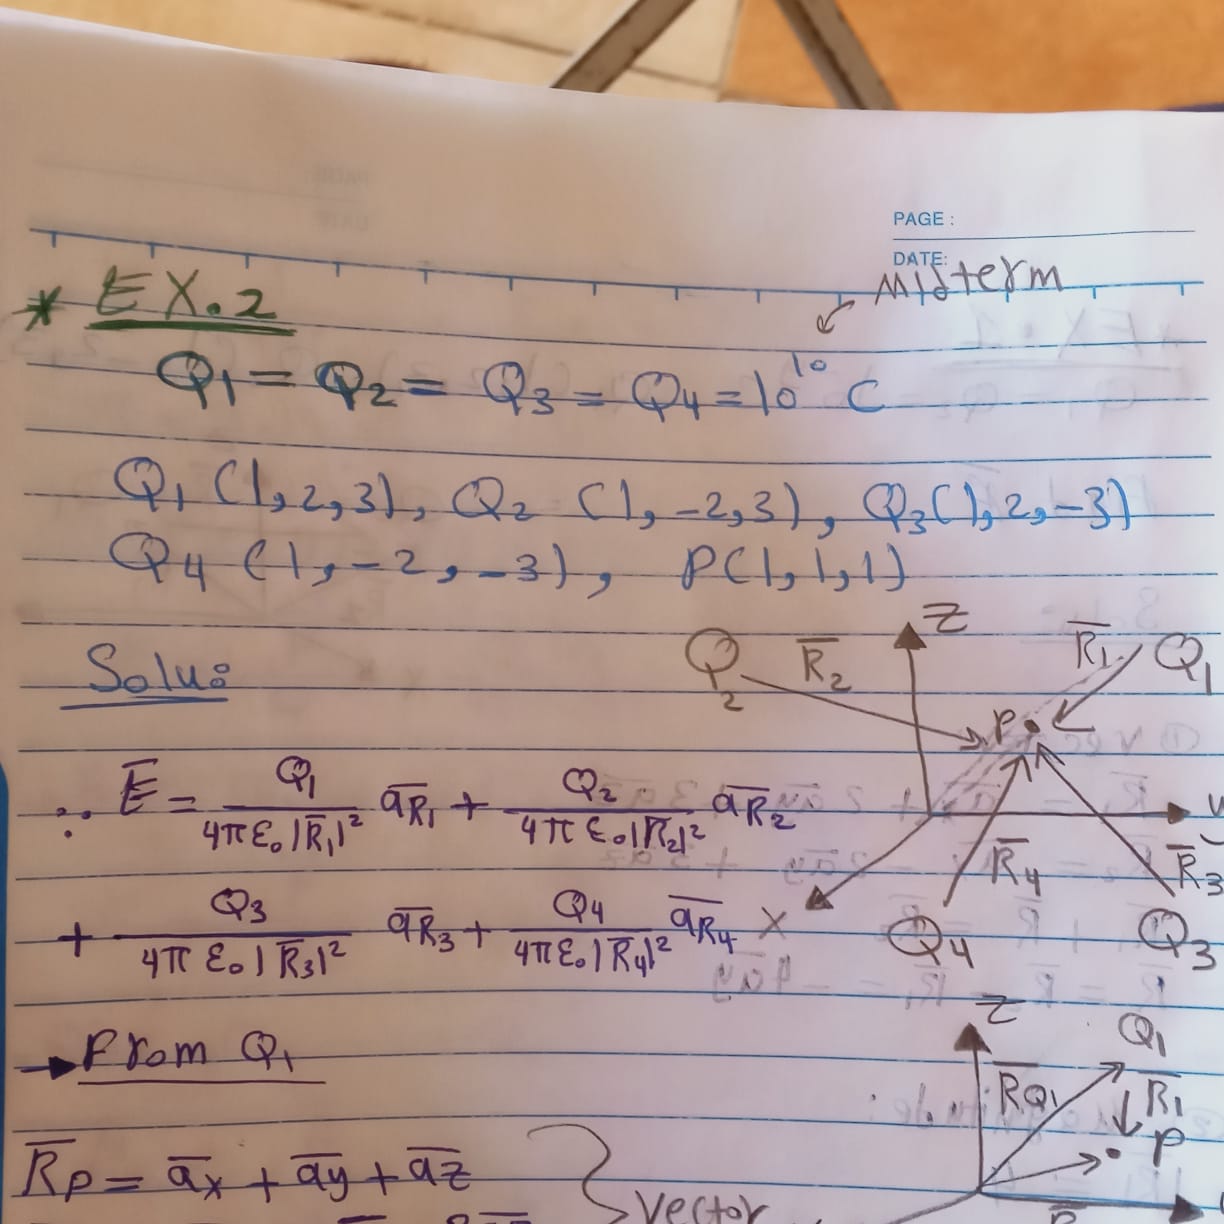 PAGE :
DATE:
Midterm
* EX.2
Q₁ = Q₂ = Q₃ = Q₄ = 10¹⁰ C
Q₁ (1,2,3), Q₂ (1,-2,3), Q₃(1,2,-3)
Q₄ (1,-2,-3), P(1,1,1)
Solu:
Z
Q₂ R̅₂ R̅₁ Q₁
P
∴ E̅ = Q₁/(4πε₀|R̅₁|²) a̅R₁ + Q₂/(4πε₀|R̅₂|²) a̅R₂
y
+ Q₃/(4πε₀|R̅₃|²) a̅R₃ + Q₄/(4πε₀|R̅₄|²) a̅R₄
X R̅₄ R̅₃
Q₄ Q₃
→ From Q₁
Z
Q₁
R̅Q₁ R̅₁
P
R̅p = a̅x + a̅y + a̅z
Vector